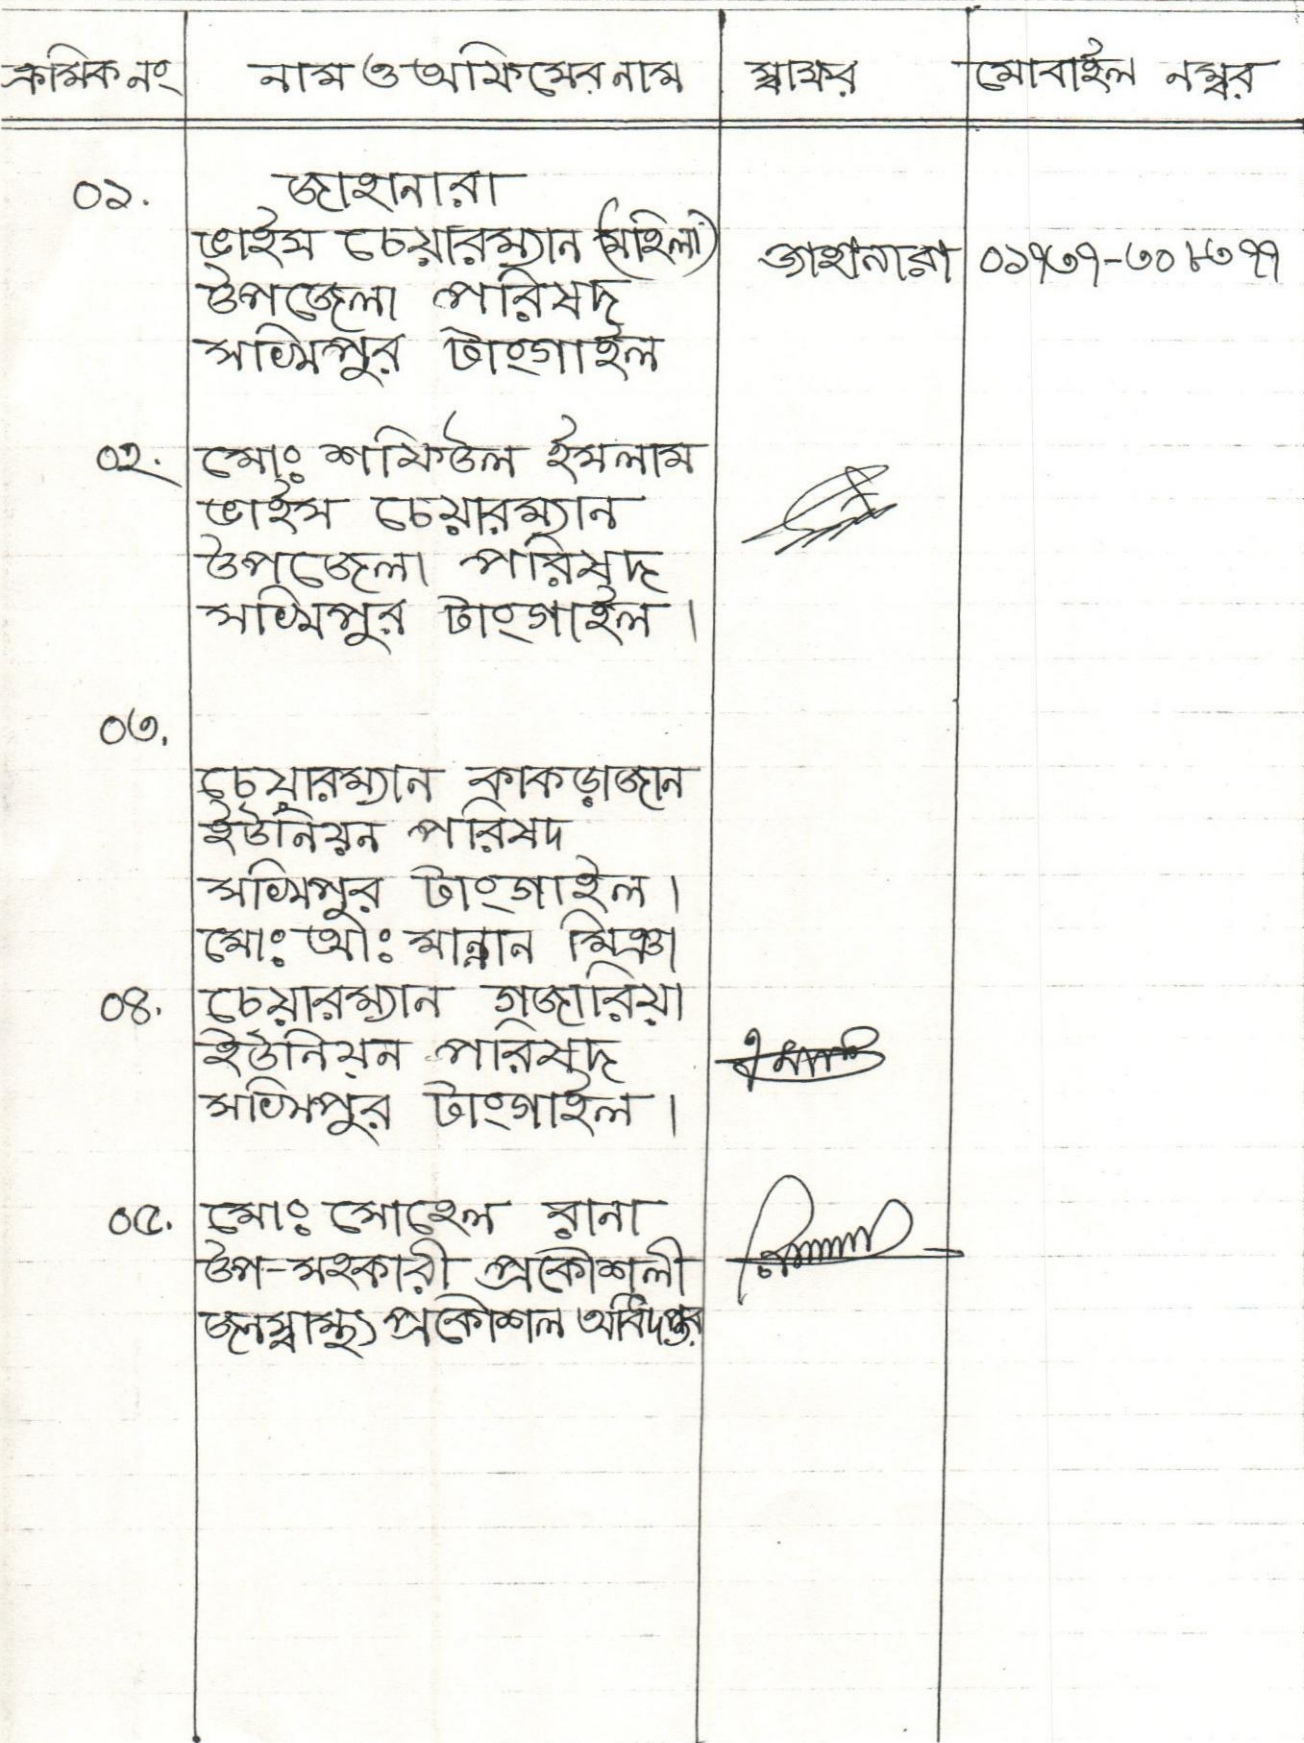 ক্রমিক নং নাম ও অফিসের নাম স্বাক্ষর মোবাইল নম্বর
০১. জাহানারা
ভাইস চেয়ারম্যান (মহিলা) জাহানারা
উপজেলা পরিষদ
সখিপুর টাংগাইল
০২. মোঃ শফিউল ইসলাম
ভাইস চেয়ারম্যান
উপজেলা পরিষদ
সখিপুর টাংগাইল।
০৩.
চেয়ারম্যান কাকড়াজান
ইউনিয়ন পরিষদ
সখিপুর টাংগাইল।
মোঃ আঃ মান্নান মিঞা
০৪. চেয়ারম্যান গজারিয়া
ইউনিয়ন পরিষদ
সখিপুর টাংগাইল।
০৫. মোঃ সোহেল রানা
উপ-সহকারী প্রকৌশলী
জনস্বাস্থ্য প্রকৌশল অধিদপ্তর